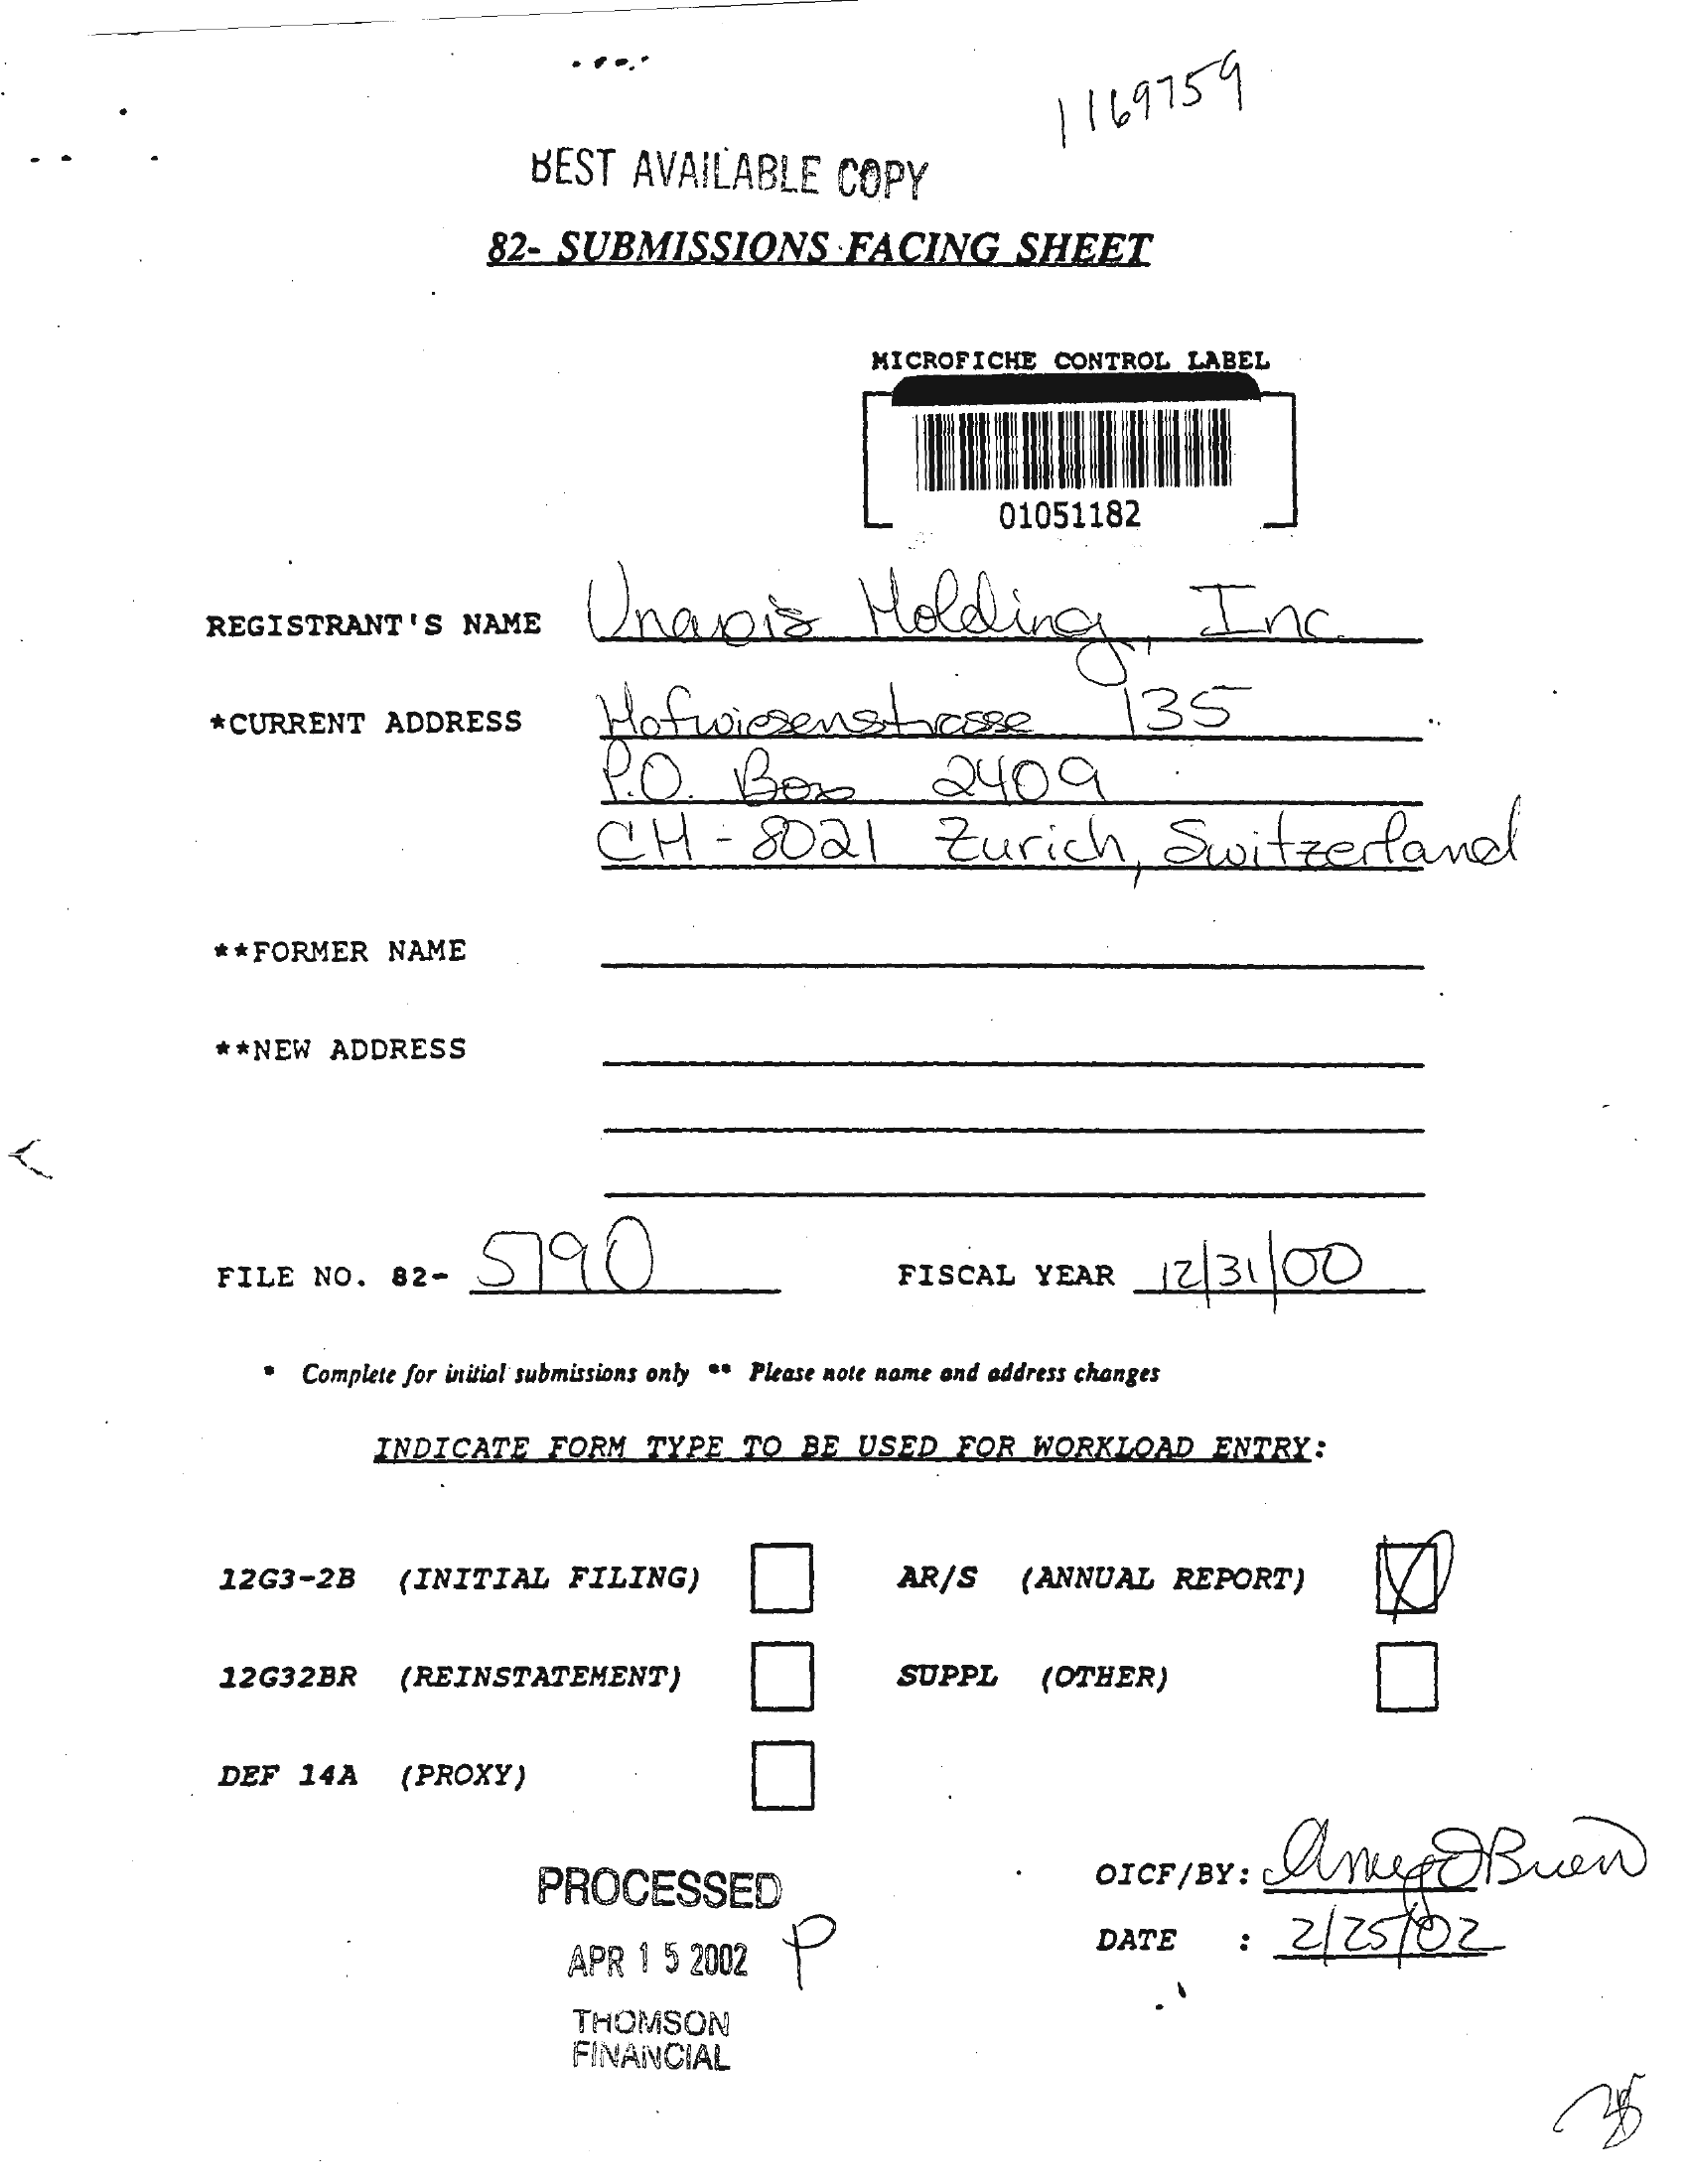 1169759
BEST AVAILABLE COPY
82- SUBMISSIONS FACING SHEET
MICROFICHE CONTROL LABEL
01051182
REGISTRANT'S NAME Unaxis Holding, Inc.
*CURRENT ADDRESS Hofwiesenstrasse 135
P.O. Box 2409
CH-8021 Zurich, Switzerland
**FORMER NAME
**NEW ADDRESS
FILE NO. 82- 5790 FISCAL YEAR 12/31/00
* Complete for initial submissions only ** Please note name and address changes
INDICATE FORM TYPE TO BE USED FOR WORKLOAD ENTRY:
12G3-2B (INITIAL FILING) AR/S (ANNUAL REPORT)
12G32BR (REINSTATEMENT) SUPPL (OTHER)
DEF 14A (PROXY)
OICF/BY: Amy O'Brien
PROCESSED
DATE : 2/25/02
APR 15 2002 P
THOMSON
FINANCIAL